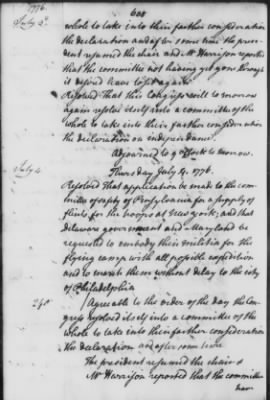 1776.
608
July 3d
whole to take into their farther consideration
the declaration and after some time the presi
dent resumed the chair and Mr Harrison reported
that the committee not having yet gone through
it desired leave to sit again
Resolved That this Congress will to morrow
again resolve itself into a committee of the
whole to take into their farther consideration
the declaration on independance
Adjourned to 9 oClock to morrow.
July 4.
Thursday July 4. 1776.
Resolved that application be made to the com
mittee of safety of Pensylvania for a supply of
flints for the troops at New york; and that
delaware government and Maryland be
requested to embody their militia for the
flying camp with all possible expedition
and to march them without delay to the city
of Philadelphia
Agreeable to the order of the day the Con
gress resolved itself into a committee of the
whole to take into their farther consideration
the declaration and after some time
The president resumed the chair &
Mr Harrison reported that the committee
have